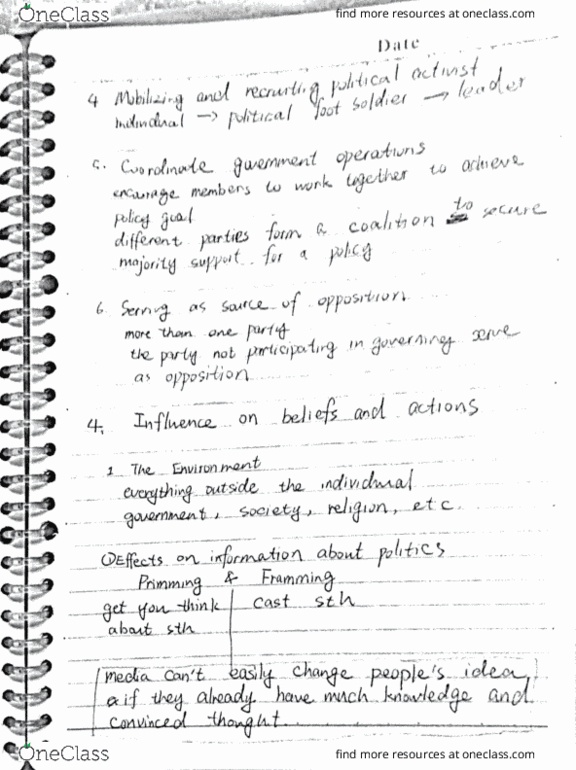 OneClass
find more resources at oneclass.com
Date
4 Mobilizing and recruiting political activist
individual → political foot soldier → leader
5. Coordinate government operations
encourage members to work together to achieve
policy goal
different parties form a coalition to secure
majority support for a policy
6. Serving as source of opposition
more than one party
the party not participating in governing serve
as opposition
4. Influence on beliefs and actions
1 The Environment
everything outside the individual
government, society, religion, etc.
① Effects on information about politics
Primming & Framming
get you think | cast sth
about sth
media can't easily change people's idea,
if they already have much knowledge and
convinced thought.
OneClass
find more resources at oneclass.com